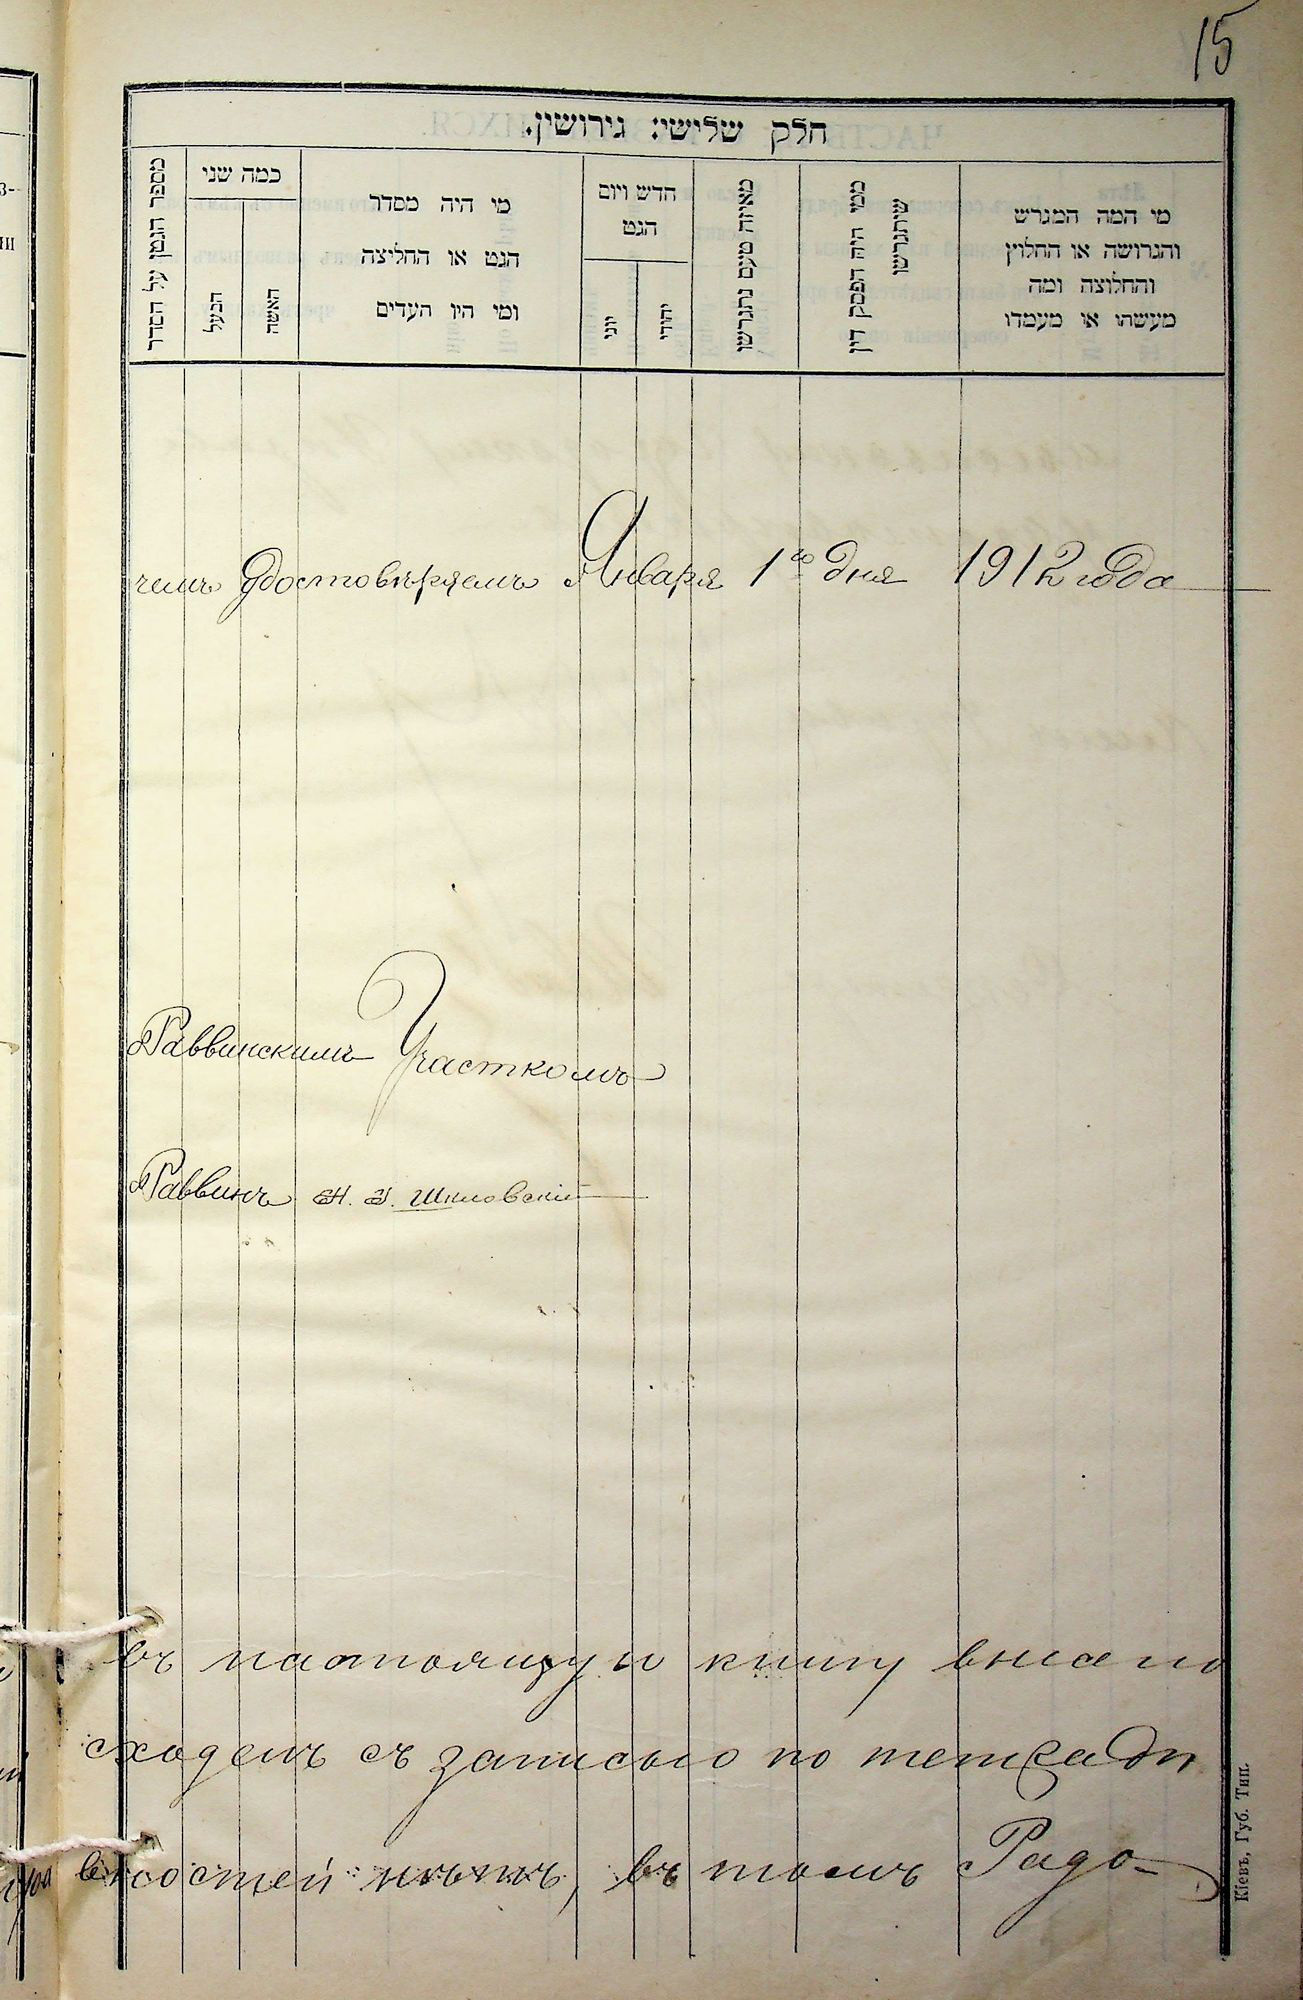 15
חלק שלישי: גירושין.
מספר הגטין על הסדר
כמה שני
הבעל
האשה
מי היה מסדר
הגט או החליצה
ומי היו העדים
חדש ויום
הגט
יוני
יהודי
מאיזה טעם נתגרשו
ממי היה הפסק דין
שיתגרשו
מי המה המגרש
והגרושה או החלוץ
והחלוצה ומה
מעשהו או מעמדו
чемъ удостовѣряемъ Января 1го дня 1912 года
Раввинскимъ Участкомъ
Раввинъ Шкловскій
въ настоящую книгу внесено
сходенъ съ записью по тетради
ностей нѣтъ, въ томъ Радо-
Кіевъ, Губ. Тип.